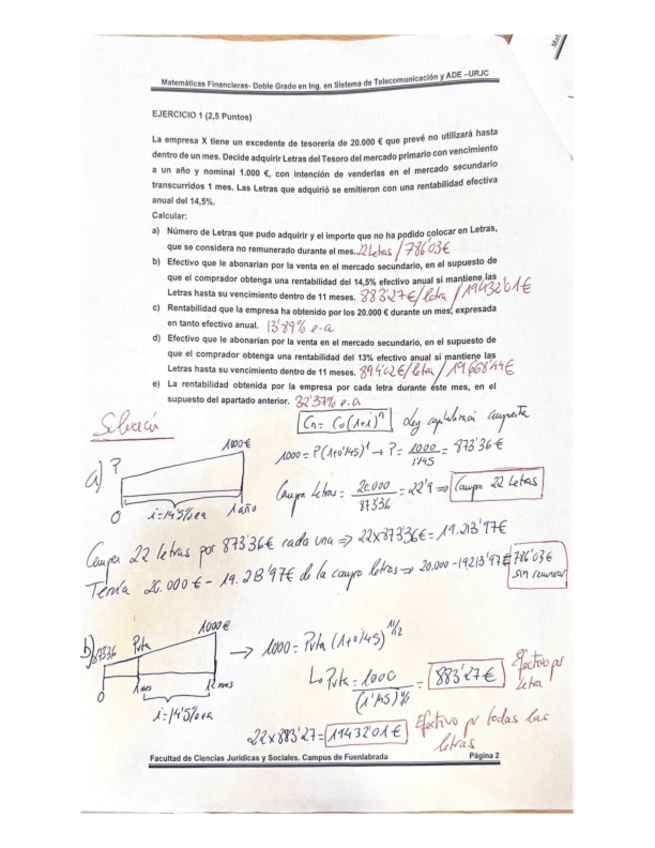 Mat
Matemáticas Financieras- Doble Grado en Ing. en Sistema de Telecomunicación y ADE –URJC
EJERCICIO 1 (2,5 Puntos)
La empresa X tiene un excedente de tesorería de 20.000 € que prevé no utilizará hasta
dentro de un mes. Decide adquirir Letras del Tesoro del mercado primario con vencimiento
a un año y nominal 1.000 €, con intención de venderlas en el mercado secundario
transcurridos 1 mes. Las Letras que adquirió se emitieron con una rentabilidad efectiva
anual del 14,5%.
Calcular:
a) Número de Letras que pudo adquirir y el importe que no ha podido colocar en Letras,
que se considera no remunerado durante el mes. 22 letras / 786'03€
b) Efectivo que le abonarían por la venta en el mercado secundario, en el supuesto de
que el comprador obtenga una rentabilidad del 14,5% efectivo anual si mantiene las
Letras hasta su vencimiento dentro de 11 meses. 883'27€/letra / 19432'01€
c) Rentabilidad que la empresa ha obtenido por los 20.000 € durante un mes, expresada
en tanto efectivo anual. 13'89% e.a
d) Efectivo que le abonarían por la venta en el mercado secundario, en el supuesto de
que el comprador obtenga una rentabilidad del 13% efectivo anual si mantiene las
Letras hasta su vencimiento dentro de 11 meses. 894'02€/letra / 19668'44€
e) La rentabilidad obtenida por la empresa por cada letra durante éste mes, en el
supuesto del apartado anterior. 32'37% e.a
Solución
Cn = Co(1+i)^n Ley capitalización compuesta
a) P 1000€
0 i=14'5% ea 1 año
1000 = P(1+0'145)^1 → P = 1000/1'145 = 873'36€
Compra letras = 20.000/873'36 = 22'9 ⇒ Compra 22 Letras
Compra 22 letras por 873'36€ cada una ⇒ 22x873'36€ = 19.213'97€
Tenía 20.000€ - 19.213'97€ de la compra letras ⇒ 20.000 - 19213'97€ = 786'03€
sin remunerar
b) 873'36 Pvta 1000€
0 1mes 12 mes
i=14'5% ea
→ 1000 = Pvta (1+0'145)^11/12
↳ Pvta = 1000/(1'145)^11/12 = 883'27€ Efectivo por letra
22x883'27 = 19432'01€ Efectivo por todas las
letras
Facultad de Ciencias Jurídicas y Sociales. Campus de Fuenlabrada Página 2